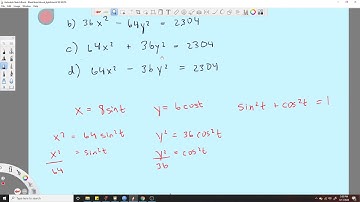 b) 36x² - 64y² = 2304
c) 64x² + 36y² = 2304
d) 64x² - 36y² = 2304
x = 8sint y = 6cost sin²t + cos²t = 1
x² = 64sin²t y² = 36cos²t
x²/64 = sin²t y²/36 = cos²t